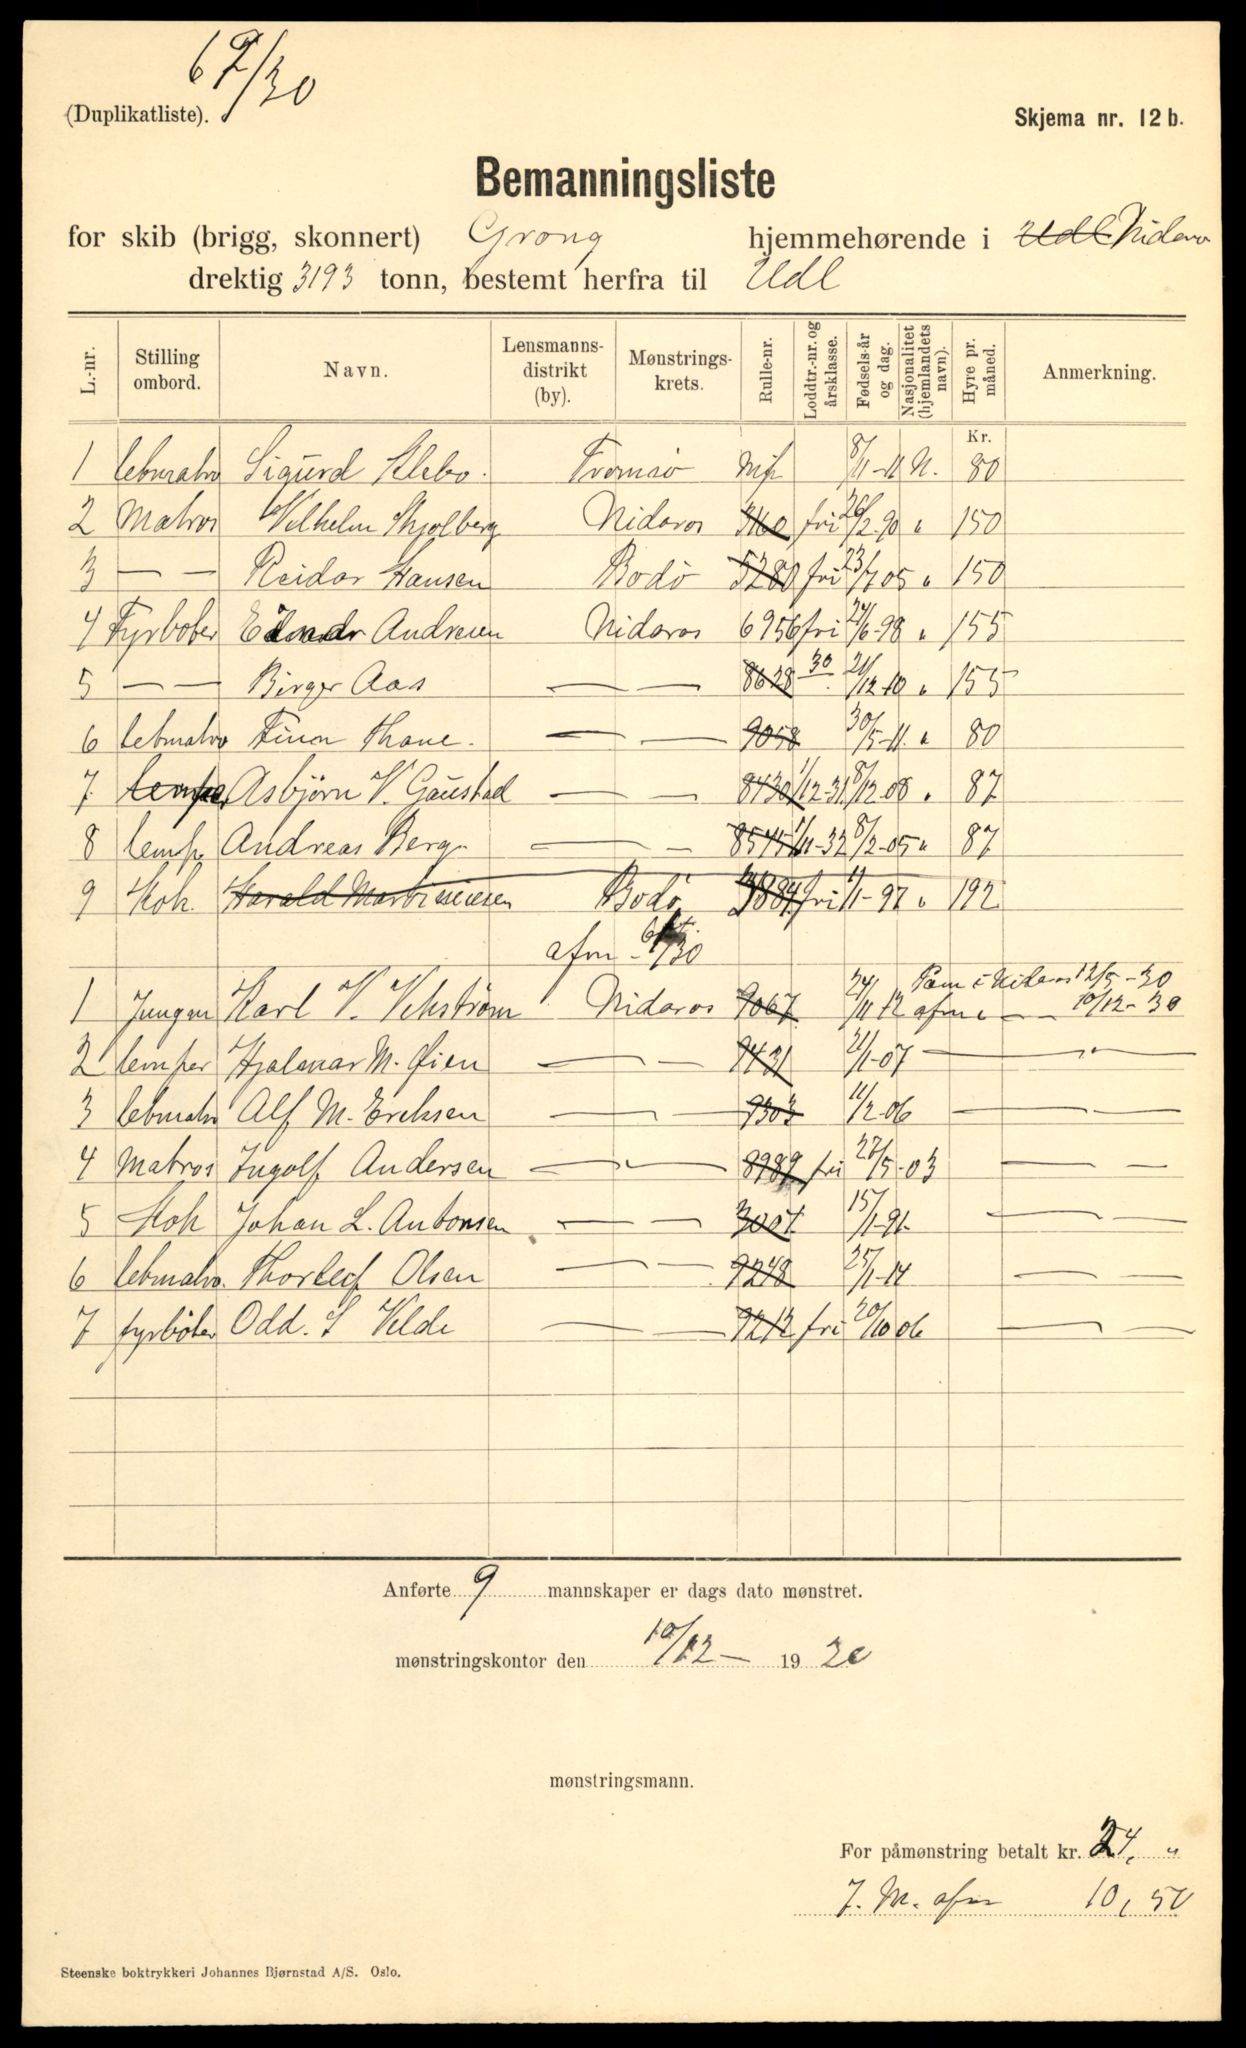 67/30
(Duplikatliste).
Skjema nr. 12 b.
Bemanningsliste
for skib (brigg, skonnert) Grong hjemmehørende i Udl Nidaros
drektig 3193 tonn, bestemt herfra til Udl
L.-nr. Stilling ombord. Navn. Lensmannsdistrikt (by). Mønstringskrets. Rulle-nr. Loddtr.-nr. og årsklasse. Fødsels-år og dag. Nasjonalitet (hjemlandets navn). Hyre pr. måned. Anmerkning.
Kr.
1 letmatro Sigurd Klebo. Tromsø 8/11-11 N. 80
2 Matros Vilhelm Skjolberg Nidaros 3160 fri 26/2-90 " 150
3 — — Reidar Hansen Bodö 5280 fri 23/7 05 " 150
4 Fyrböter Einar Andresen Nidaros 6956 fri 24/6-98 " 155
5 — — Birger Aas — — 8628 30 21/12-10 " 155
6 letmatro Finn Thane. — — 9058 30/5-11. " 80
7. lemper Asbjörn V. Gaustad — — 8430 1/12-31 8/12-08 " 87
8 lemp. Andreas Berg — — 8545 1/11-32 8/2-05 " 87
9 Kok. Harald Martinussen Bodö 3884 fri 4/1-97 " 192
afm 6/30
1 Jungm Karl V. Vikström Nidaros 9067 24/11 12 Paam i Nidaros 12/5-30
afm i — — 10/12-30
2 lemper Hjalmar M. Øien — — 9431 21/1-07 — " —
3 letmatro Alf M. Eriksen — — 9303 11/2-06 — —
4 Matros Ingolf Andersen — — 8989 fri 27/5-03 — —
5 Kok Johan L. Antonsen — — 3007 15/1-91- — —
6 letmatro. Thorleif Olsen — — 9248 25/1-14 — —
7 fyrböter Odd. S Velde — — 9212 fri 20/10 06 — —
Anførte 9 mannskaper er dags dato mønstret.
mønstringskontor den 10/12 — 19 30
mønstringsmann.
For påmønstring betalt kr. 24, "
7. M. afm 10,50
Steenske boktrykkeri Johannes Bjørnstad A/S. Oslo.